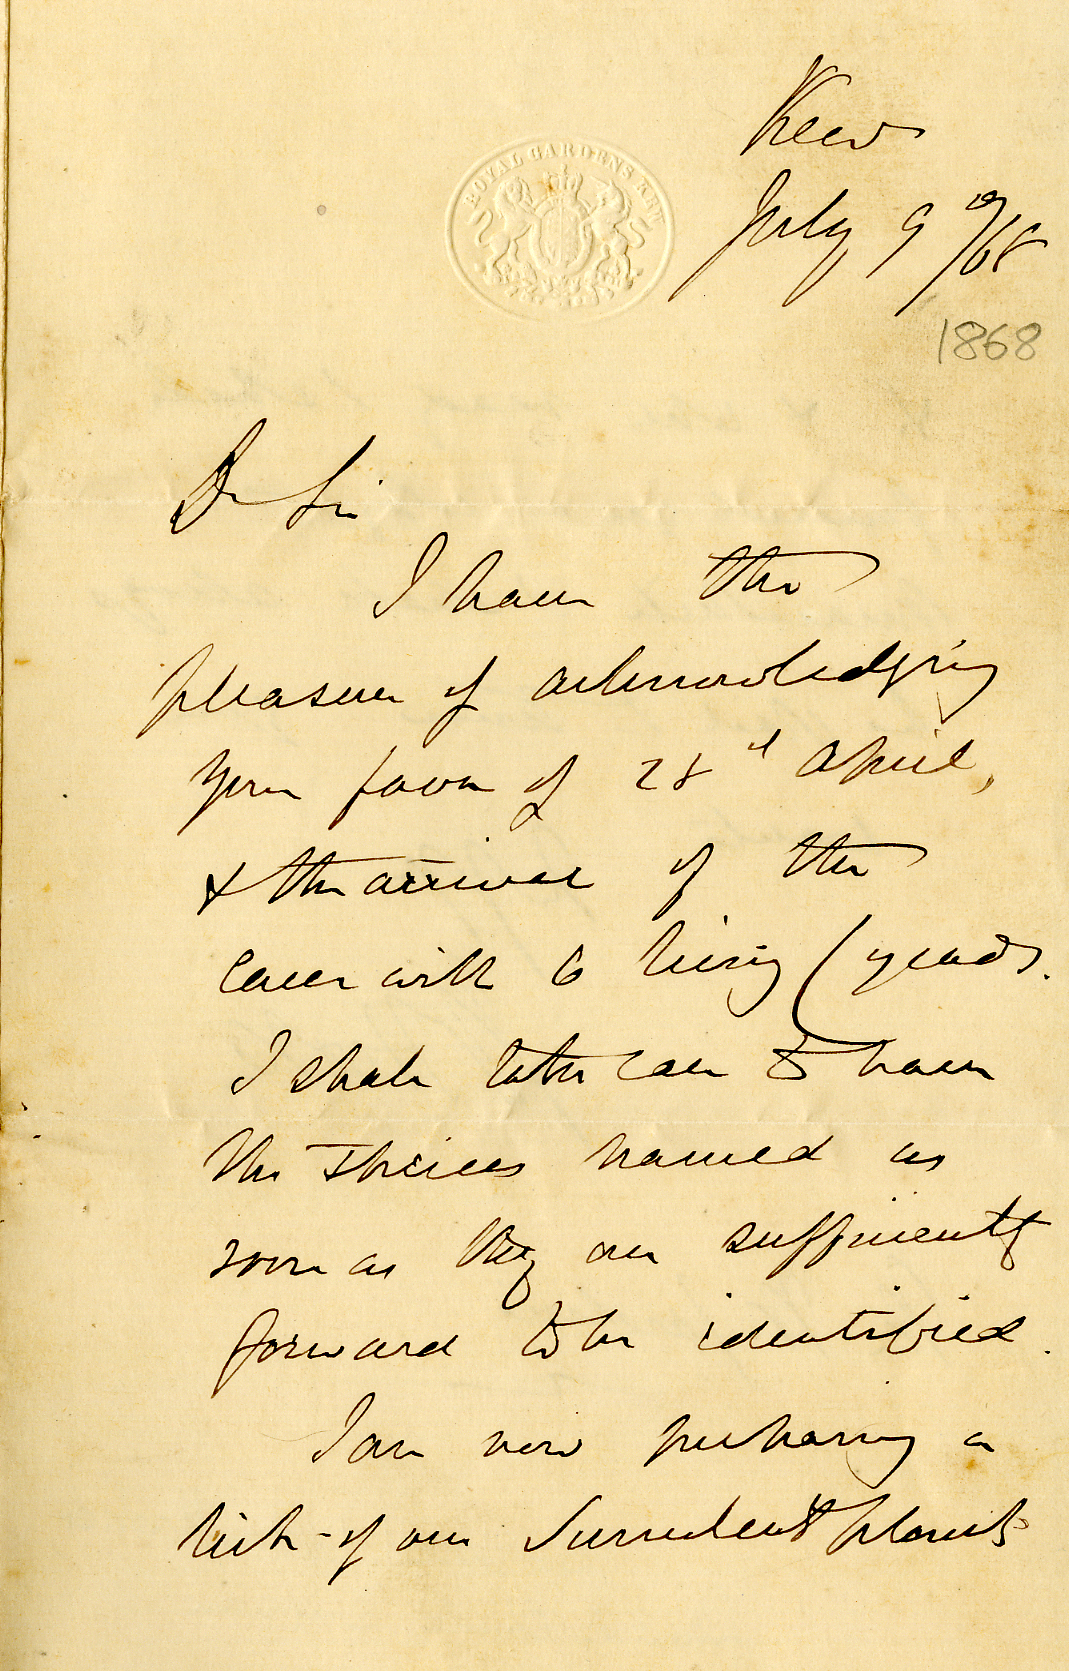 ROYAL GARDENS KEW
Kew
July 9 /68
1868
Dr Sir
I have the
pleasure of acknowledging
your favor of 28th April,
& the arrival of the
case with 6 living Cycads.
I shall take care to have
the species named as
soon as they are sufficiently
forward to be identified.
I am now preparing a
list of our Succulent plants